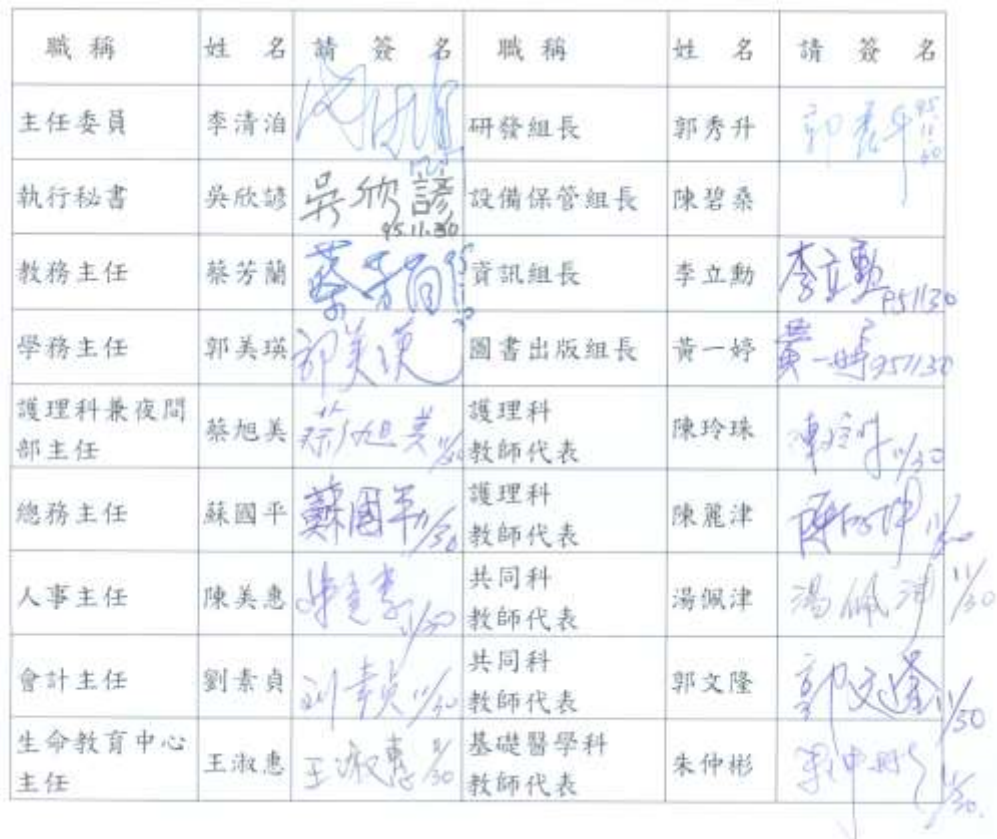 職稱 姓名 請簽名 職稱 姓名 請簽名
主任委員 李清泊 研發組長 郭秀升 郭秀升 95.11.30
執行秘書 吳欣諺 吳欣諺 95.11.30 設備保管組長 陳碧桑
教務主任 蔡芳蘭 資訊組長 李立勳 李立勳 951130
學務主任 郭美瑛 郭美瑛 圖書出版組長 黃一婷 黃一婷 951130
護理科兼夜間
部主任 蔡旭美 蔡旭美 11/30 護理科
教師代表 陳玲珠 11/30
總務主任 蘇國平 蘇國平 11/30 護理科
教師代表 陳麗津 11/30
人事主任 陳美惠 11/30 共同科
教師代表 湯佩津 湯佩津 11/30
會計主任 劉素貞 11/30 共同科
教師代表 郭文隆 郭文隆 11/30
生命教育中心
主任 王淑惠 王淑惠 11/30 基礎醫學科
教師代表 朱仲彬 朱仲彬 11/30.